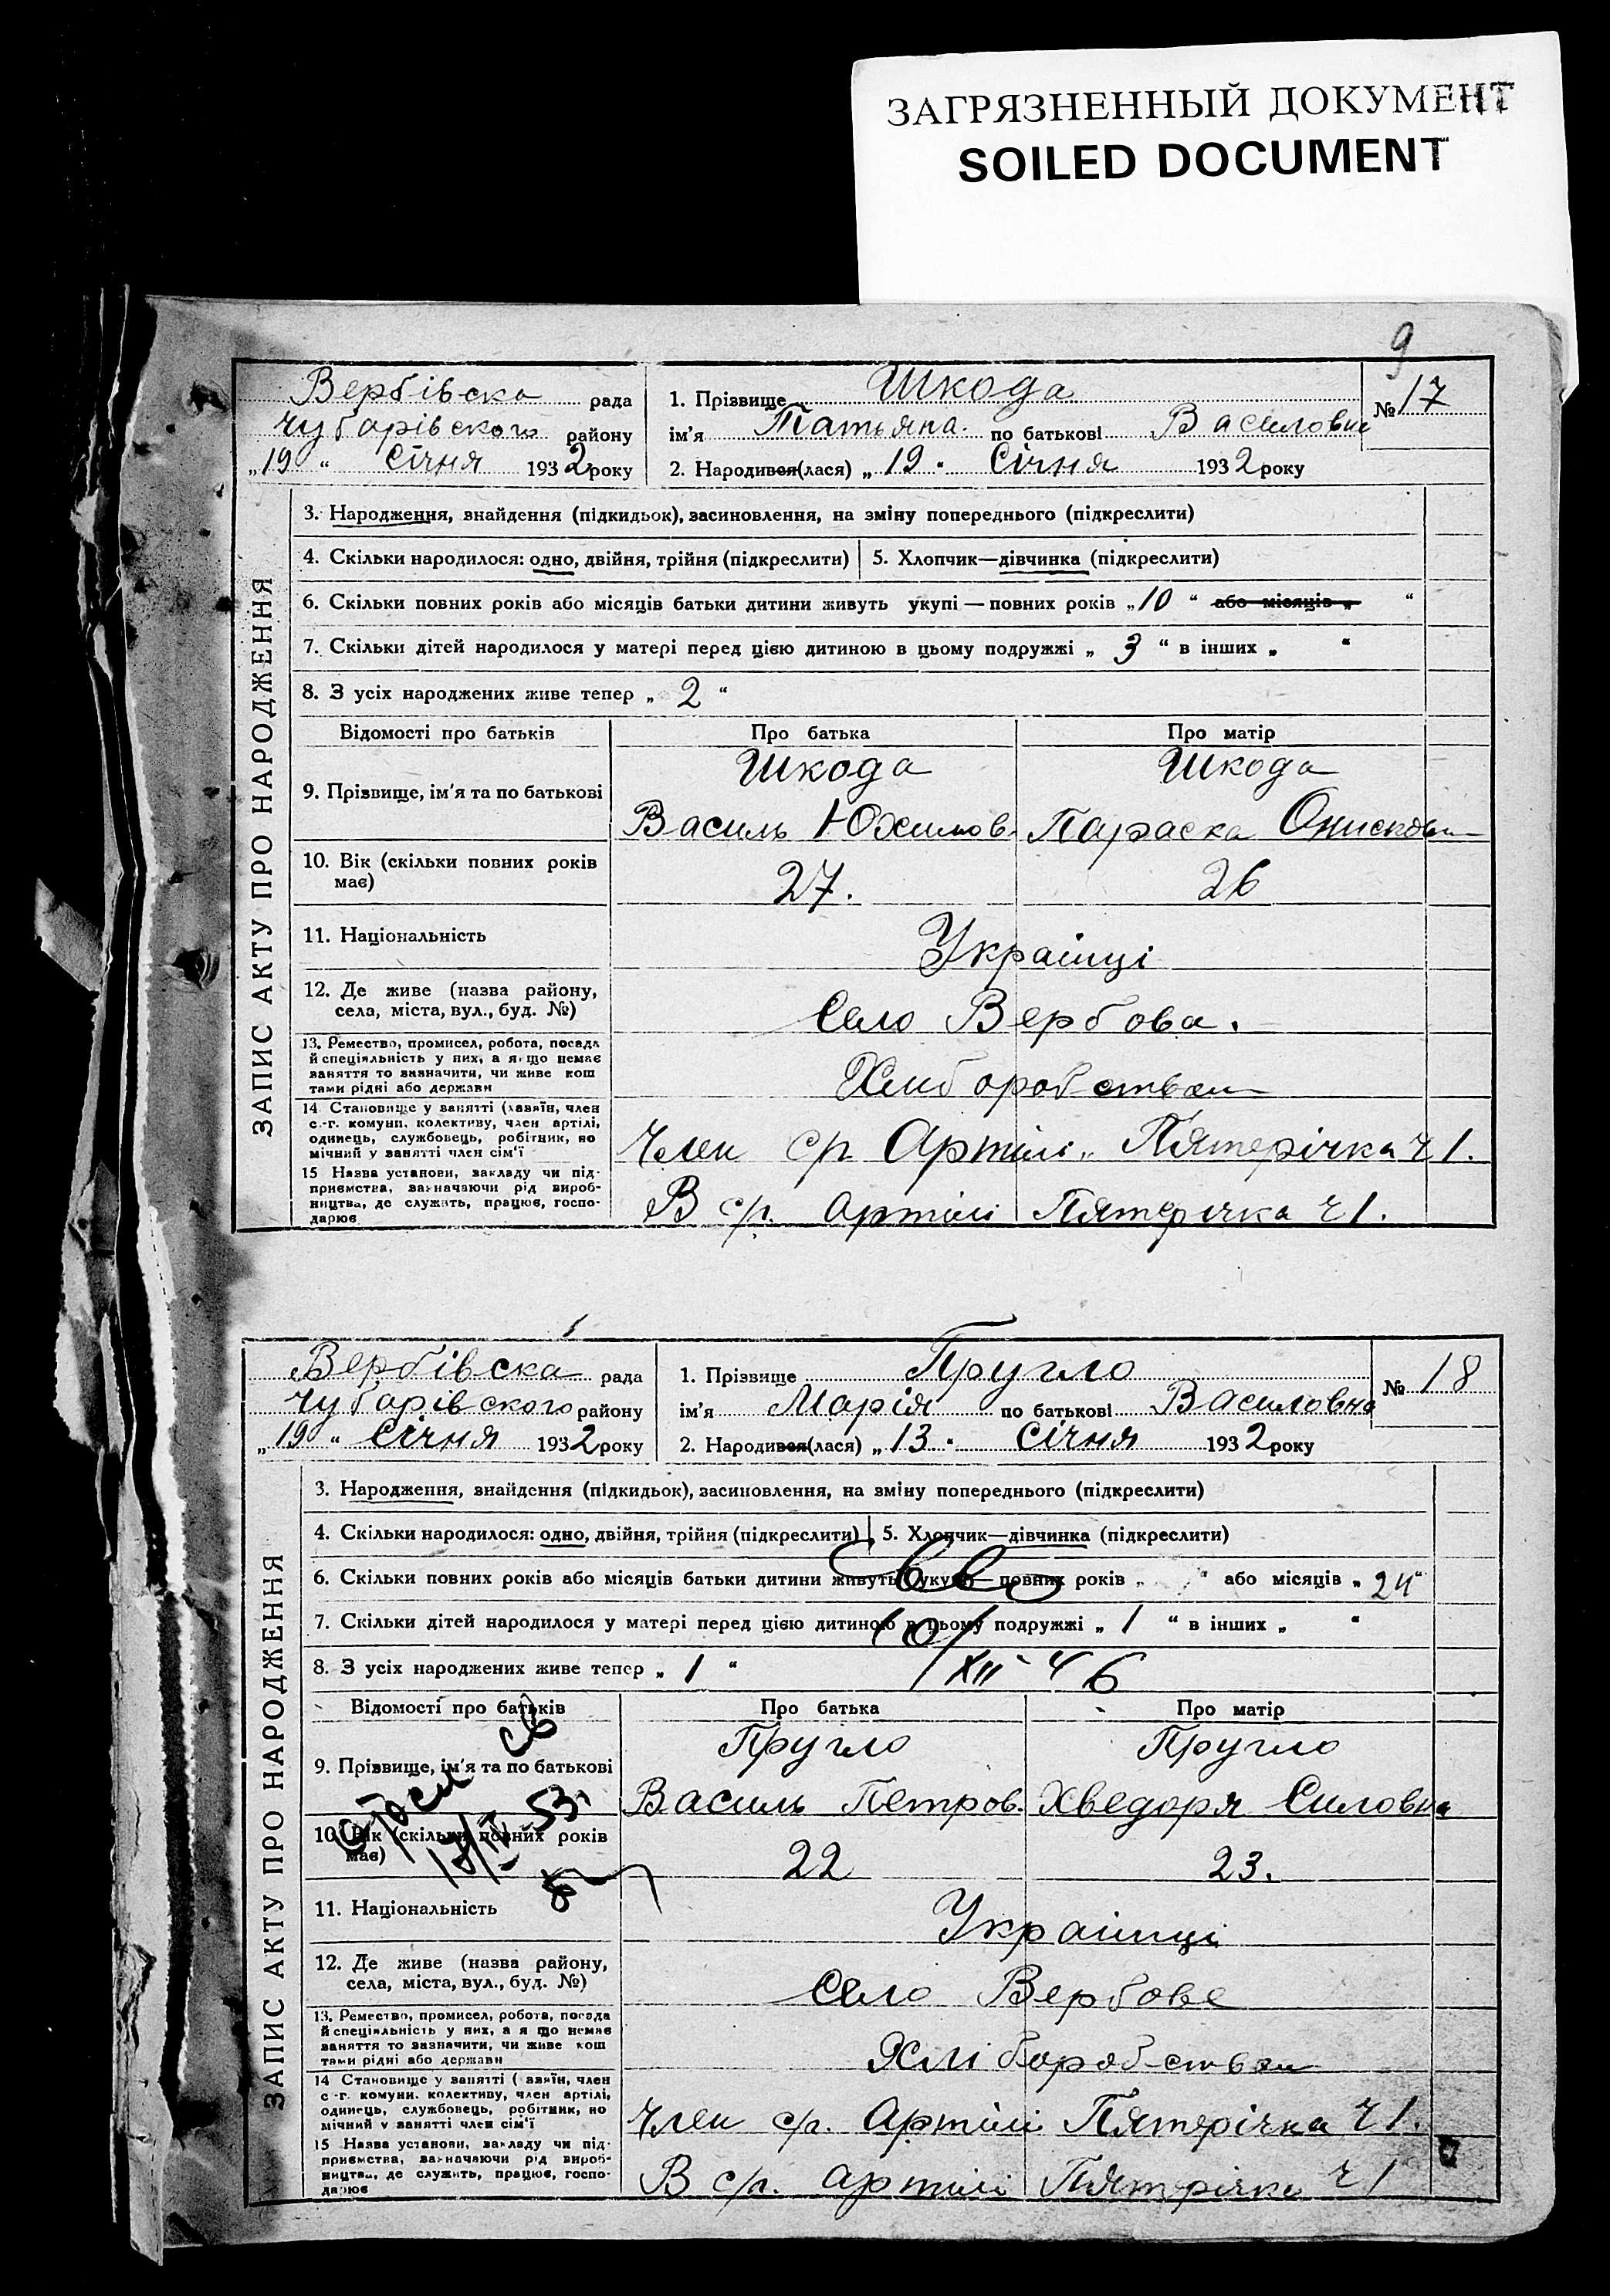 ЗАГРЯЗНЕННЫЙ ДОКУМЕНТ
SOILED DOCUMENT
9
ЗАПИС АКТУ ПРО НАРОДЖЕННЯ
Вербівска рада
Чубарівского району
„19“ Січня 1932 року
1. Прізвище Шкода
№ 17
ім'я Татьяна по батькові Василовна
2. Народився(лася) „19“ Січня 1932 року
3. Народження, знайдення (підкидьок), засиновлення, на зміну попереднього (підкреслити)
4. Скільки народилося: одно, двійня, трійня (підкреслити) 5. Хлопчик—дівчинка (підкреслити)
6. Скільки повних років або місяців батьки дитини живуть укупі—повних років „10“ або місяців „ “
7. Скільки дітей народилося у матері перед цією дитиною в цьому подружжі „3“ в інших „ “
8. З усіх народжених живе тепер „2“
Відомості про батьків Про батька Про матір
9. Прізвище, ім'я та по батькові
Шкода Шкода
Василь Юхимов. Параска Онисковн
10. Вік (скільки повних років має) 27. 26
11. Національність Украінці
12. Де живе (назва району, села, міста, вул., буд. №) Село Вербова.
13. Ремество, промисел, робота, посада
й спеціяльність у них, а якщо немає
заняття то зазначити, чи живе кош
тами рідні або держави
Хлиборобством
14 Становище у занятті (хазяїн, член
с.-г. комуни, колективу, член артілі,
одинець, службовець, робітник, по
мічний у занятті член сім'ї
Член с/г. Артілі „Пятерічка ч 1.
15 Назва установи, закладу чи під-
приємства, зазначаючи рід вироб-
ництва, де служить, працює, госпо-
дарює
В с/г. артілі Пятерічка ч 1.
ЗАПИС АКТУ ПРО НАРОДЖЕННЯ
Вербівска рада
Чубарівского району
„19“ Січня 1932 року
1. Прізвище Пругло
№ 18
ім'я Марія по батькові Василовна
2. Народився(лася) „13“ Січня 1932 року
3. Народження, знайдення (підкидьок), засиновлення, на зміну попереднього (підкреслити)
4. Скільки народилося: одно, двійня, трійня (підкреслити) 5. Хлопчик—дівчинка (підкреслити)
6. Скільки повних років або місяців батьки дитини живуть укупі—повних років „ “ або місяців „24“
7. Скільки дітей народилося у матері перед цією дитиною в цьому подружжі „1“ в інших „ “
8. З усіх народжених живе тепер „1“
XII 46
Відомості про батьків Про батька Про матір
9. Прізвище, ім'я та по батькові
Пругло Пругло
Василь Петров. Хведоря Силовна
53.
10. Вік (скільки повних років має) 22 23.
11. Національність Украінці
12. Де живе (назва району, села, міста, вул., буд. №) Село Вербове
13. Ремество, промисел, робота, посада
й спеціяльність у них, а якщо немає
заняття то зазначити, чи живе кош
тами рідні або держави
Хліборобством
14 Становище у занятті (хазяїн, член
с.-г. комуни, колективу, член артілі,
одинець, службовець, робітник, по
мічний у занятті член сім'ї
Член с/г. Артілі Пятерічка ч 1.
15 Назва установи, закладу чи під-
приємства, зазначаючи рід вироб-
ництва, де служить, працює, госпо-
дарює
В с/г. артілі Пятерічка ч 1